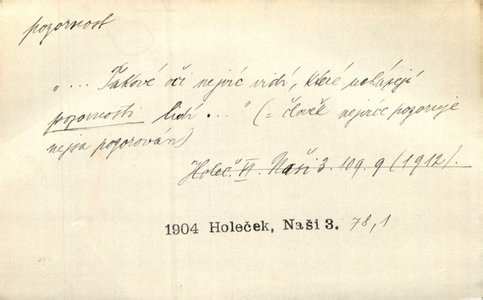 pozornost
„... Takové oči nejvíc vidí, které neházejí
pozornosti lidí ..." (= člověk nejvíce pozoruje
nejsa pozorován)
Holeč. VI. Naši 3. 109. 9 (1912).
1904 Holeček, Naši 3. 78,1